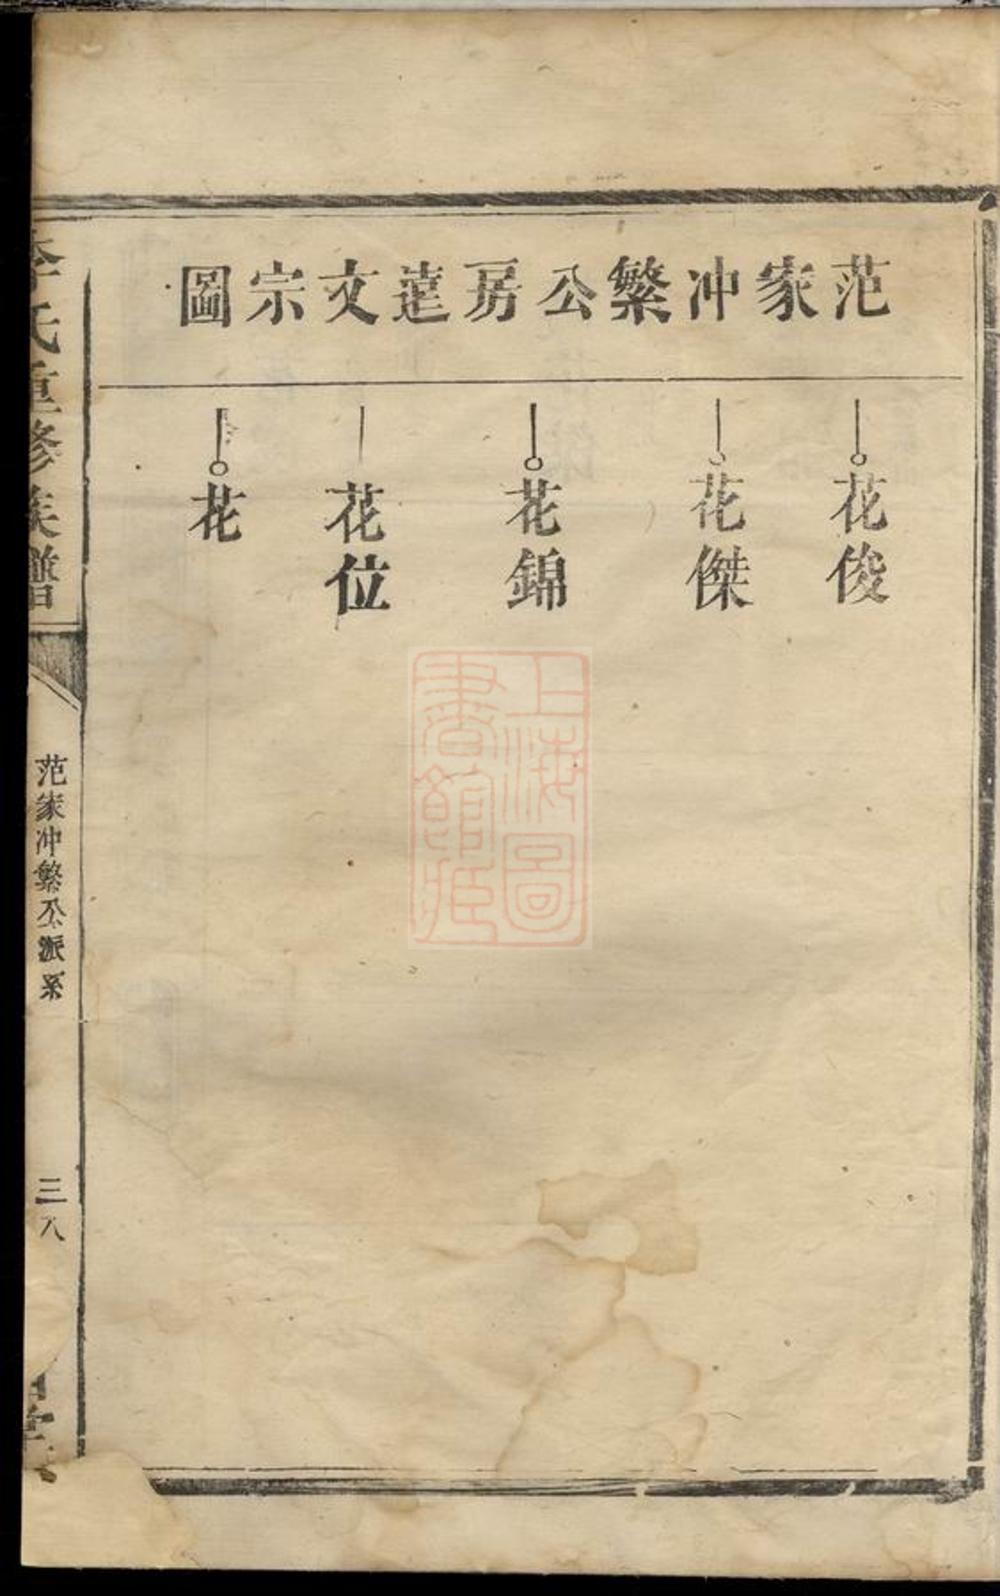 范家冲繁公房蓮文宗圖
花俊
花傑
花錦
花位
花
李氏重修族譜
范家冲繁公派系
三八
堂
上海圖書館藏